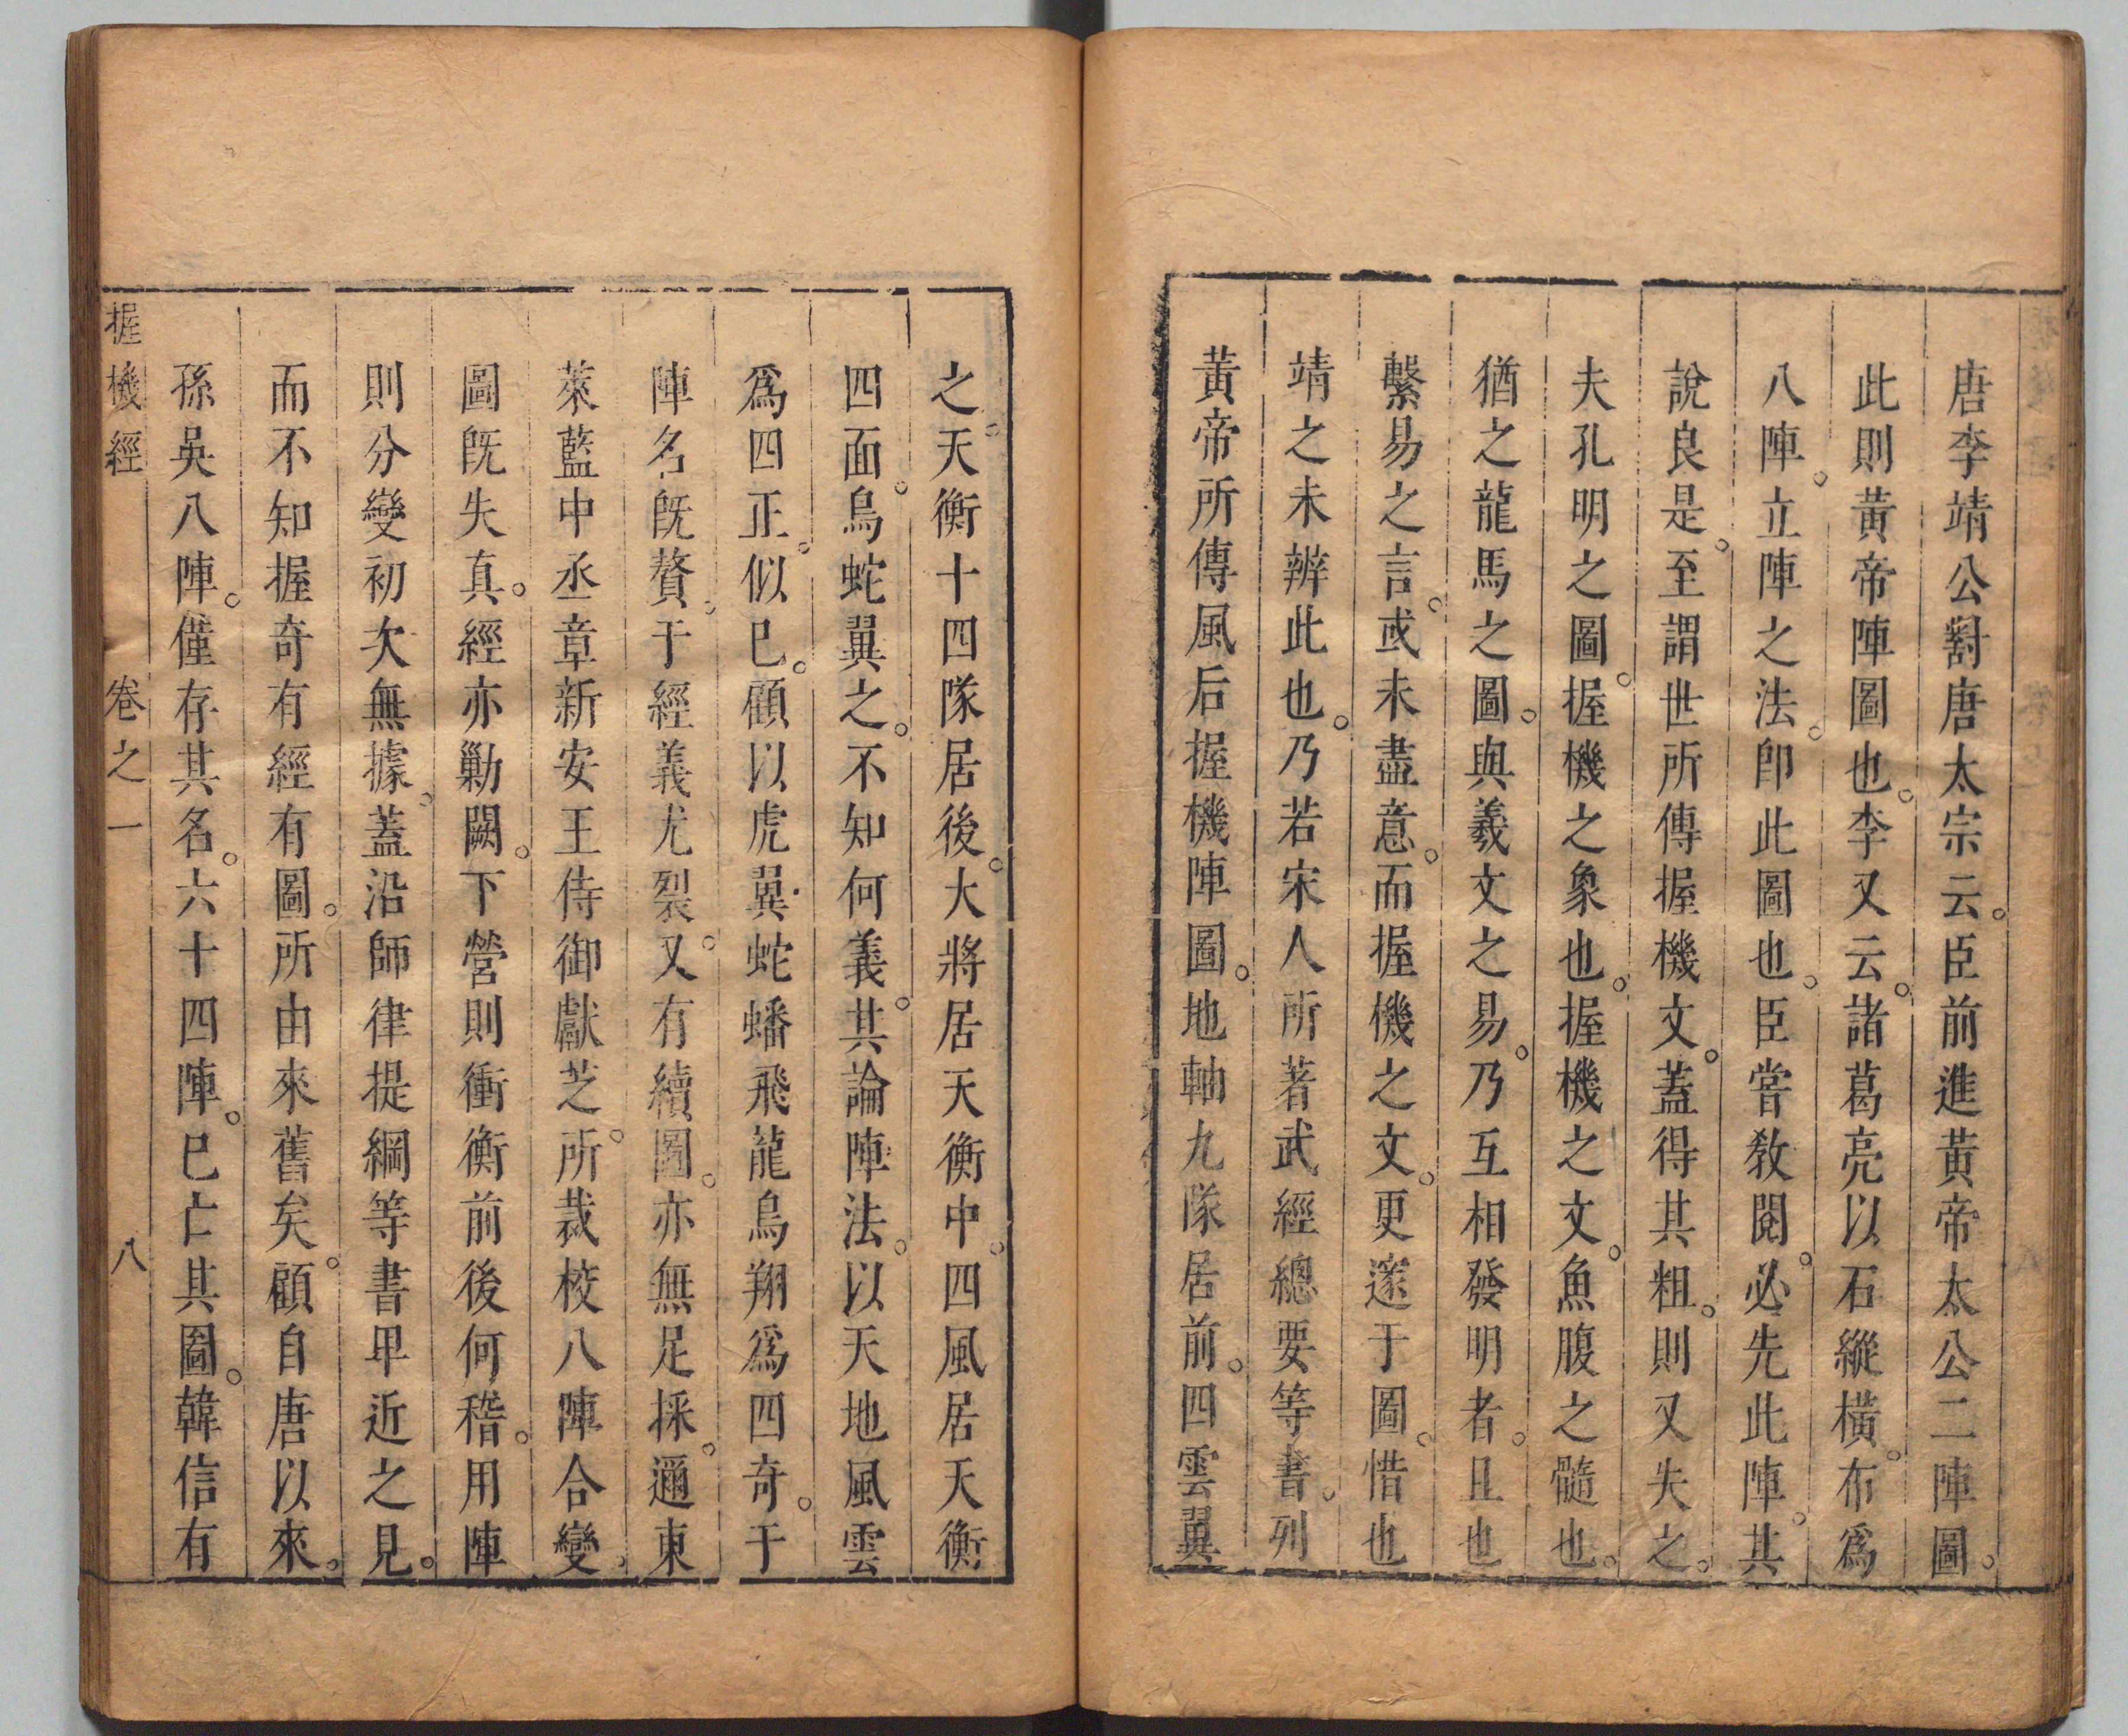 唐李靖公對唐太宗云。臣前進黃帝太公二陣圖。
此則黃帝陣圖也。李又云。諸葛亮以石縱橫。布爲
八陣。立陣之法。卽此圖也。臣嘗敎閱。必先此陣。其
說良是。至謂世所傳握機文。蓋得其粗。則又失之。
夫孔明之圖。握機之象也。握機之文。魚腹之髓也。
猶之龍馬之圖。與羲文之易。乃互相發明者。且也
繫易之言。或未盡意。而握機之文。更邃于圖。惜也
靖之未辨此也。乃若宋人所著武經總要等書。列
黃帝所傳風后握機陣圖。地軸九隊居前。四雲翼
之。天衡十四隊居後。大將居天衡中。四風居天衡
四面。鳥蛇翼之。不知何義。其論陣法。以天地風雲
爲四正。似已。顧以虎翼蛇蟠飛龍鳥翔爲四奇。于
陣名旣贅。于經義尤裂。又有續圖。亦無足採。邇東
萊藍中丞章新安王侍御獻芝。所裁校八陣合變。
圖旣失真。經亦勦闕。下營則衝衡前後何稽。用陣
則分變初次無據。蓋沿師律提綱等書卑近之見。
而不知握奇有經有圖。所由來舊矣。顧自唐以來。
孫吳八陣。僅存其名。六十四陣。已亡其圖。韓信有
握機經 卷之一 八